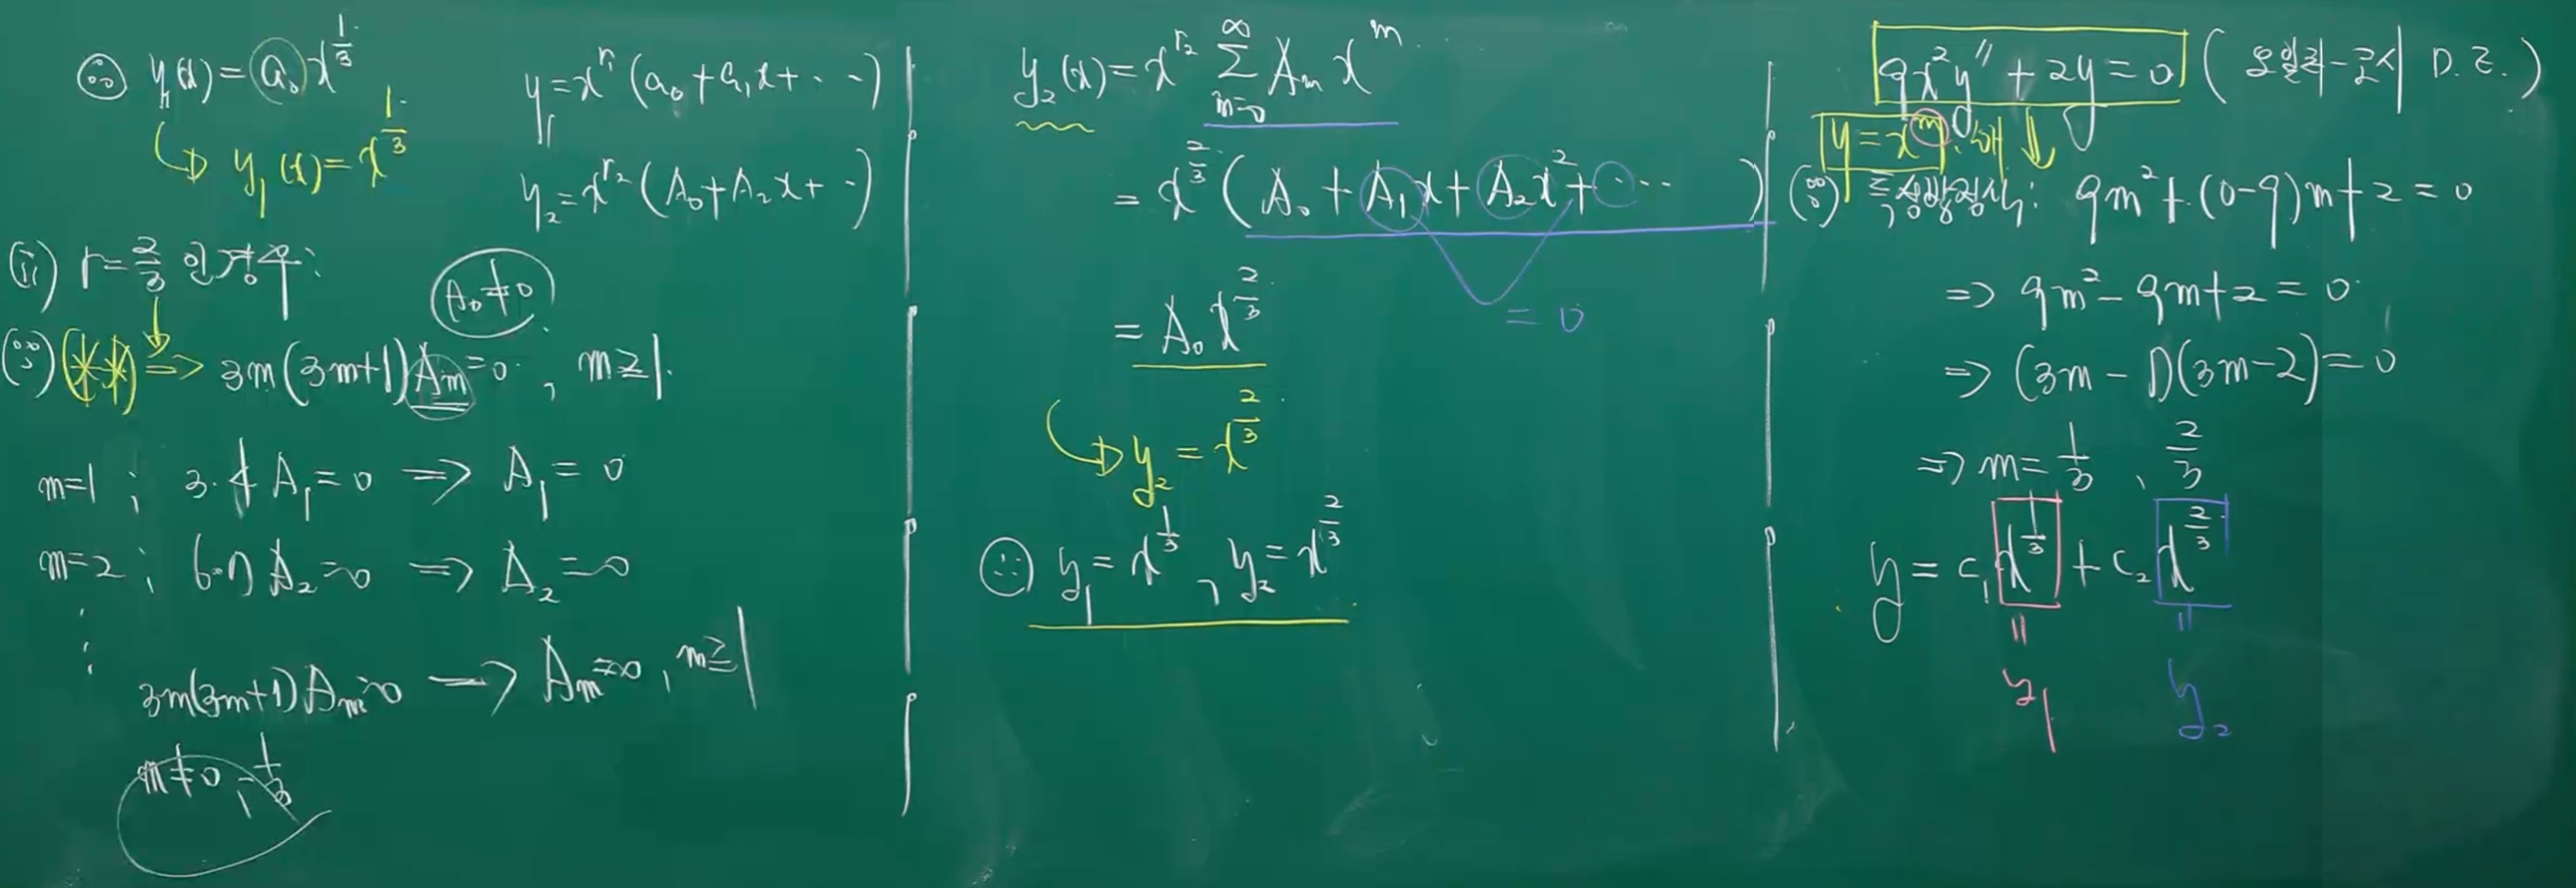 ∴ y₁(x) = a₀ x^{1/3}
↳ y₁(x) = x^{1/3}
y₁ = x^{r₁}(a₀ + a₁x + ⋯)
y₂ = x^{r₂}(A₀ + A₂x + ⋯)
(ii) r = 2/3 인 경우:
A₀ ≠ 0
(∵) (**) ⇒ 3m(3m+1)Aₘ = 0, m ≥ 1.
m=1 ; 3·4 A₁ = 0 ⇒ A₁ = 0
m=2 ; 6·7 A₂ = 0 ⇒ A₂ = 0
⋮
3m(3m+1)Aₘ = 0 → Aₘ = 0, m ≥ 1
m ≠ 0, -1/3
y₂(x) = x^{r₂} ∑_{m=0}^{∞} Aₘ x^m
= x^{2/3}(A₀ + A₁x + A₂x² + ⋯ )
= 0
= A₀ x^{2/3}
↳ y₂ = x^{2/3}
∴ y₁ = x^{1/3}, y₂ = x^{2/3}
9x²y″ + 2y = 0 (오일러-코시 D.E.)
y = x^m : 해 ↓
(∵) 특성방정식: 9m² + (0-9)m + 2 = 0
⇒ 9m² - 9m + 2 = 0
⇒ (3m - 1)(3m - 2) = 0
⇒ m = 1/3, 2/3
y = c₁ x^{1/3} + c₂ x^{2/3}
= y₁
= y₂